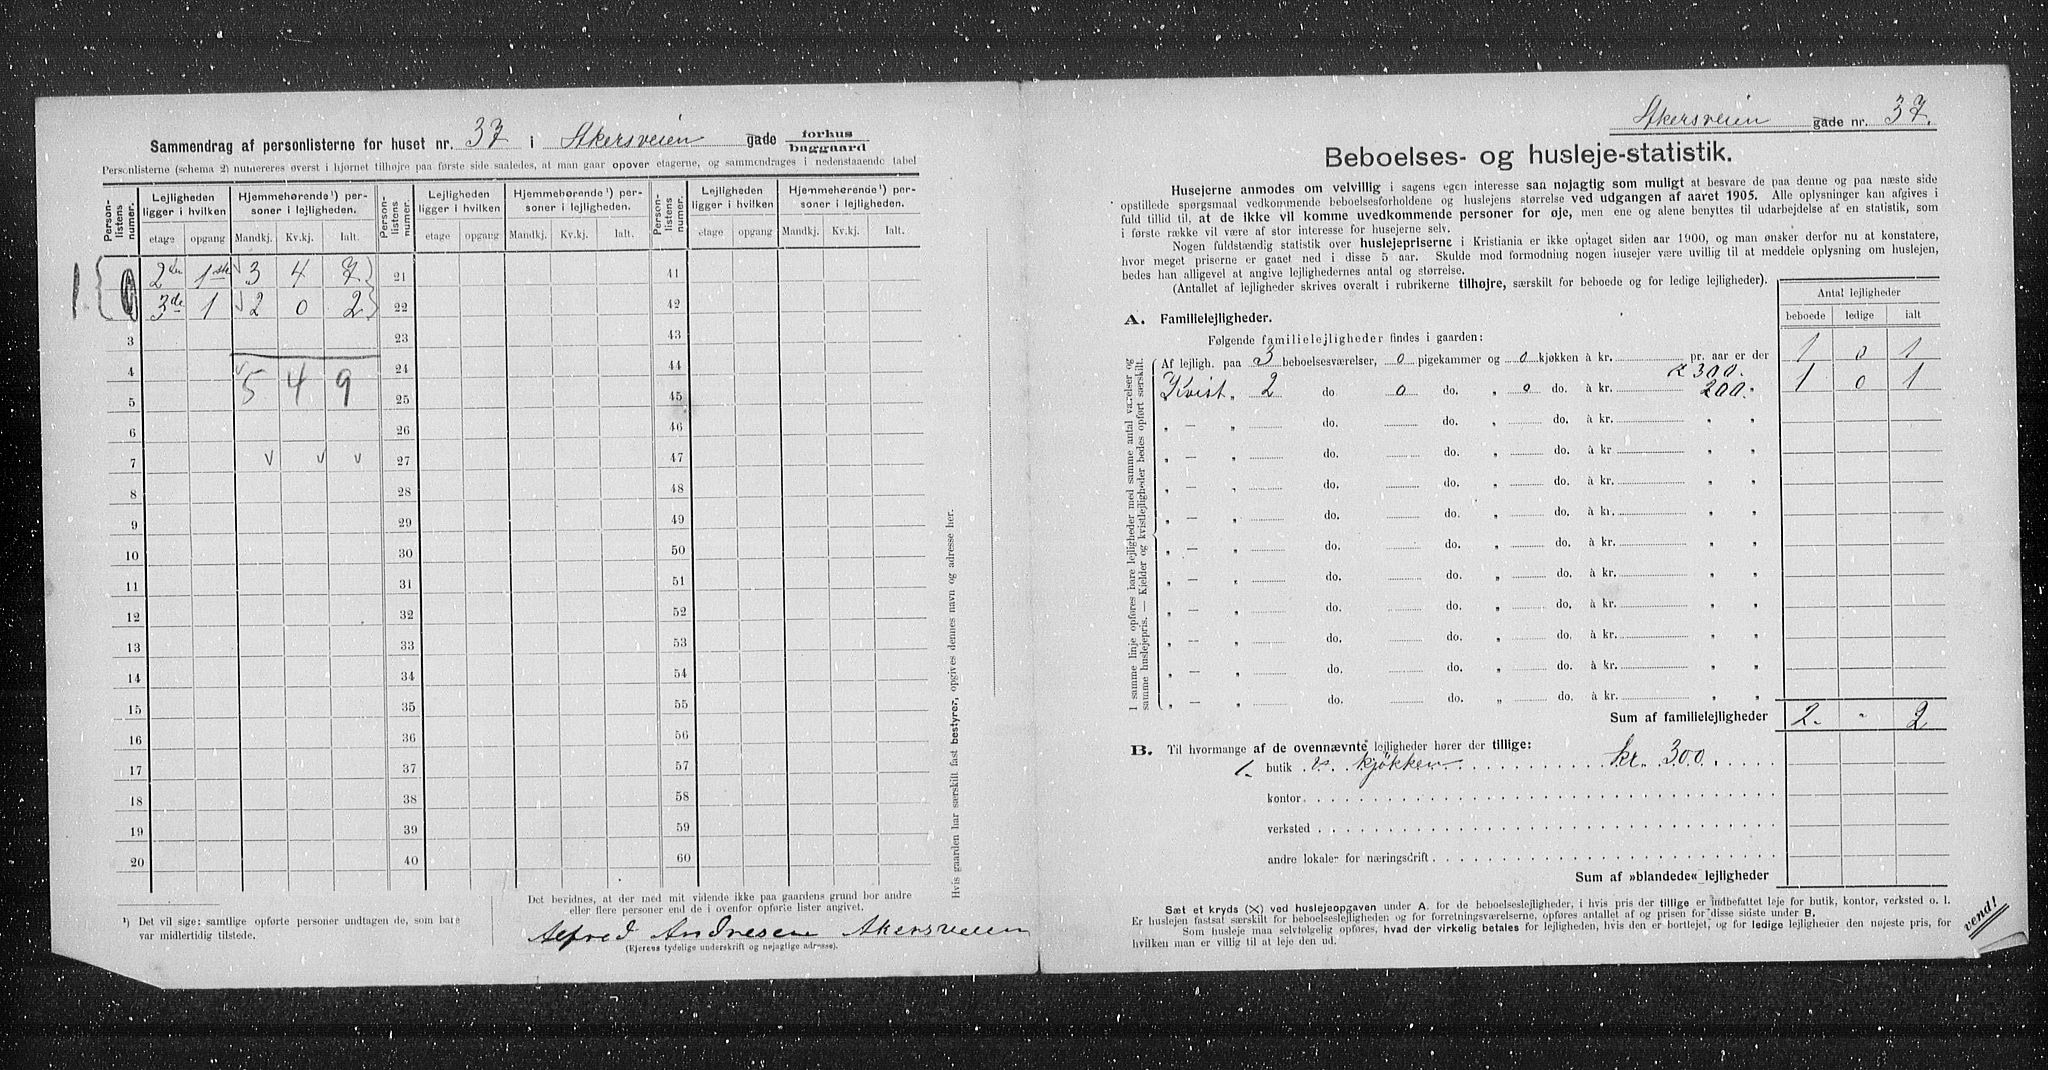 Sammendrag af personlisterne for huset nr. 37 i Akersveien gade forhus baggaard
Personlisterne (schema 2) numereres øverst i hjørnet tilhøjre paa første side saaledes, at man gaar opover etagerne, og sammendrages i nedenstaaende tabel
Person-listens numer. Lejligheden ligger i hvilken Hjemmehørende¹) personer i lejligheden. Person-listens numer. Lejligheden ligger i hvilken Hjemmehørende¹) personer i lejligheden. Person-listens numer. Lejligheden ligger i hvilken Hjemmehørende¹) personer i lejligheden.
etage opgang Mandkj. Kv.kj. Ialt. etage opgang Mandkj. Kv.kj. Ialt. etage opgang Mandkj. Kv.kj. Ialt.
1. 2den 1ste 3 4 7 21 41
3de 1 2 0 2 22 42
3 23 43
4 5 4 9 24 44
5 25 45
6 26 46
7 27 47
8 28 48
9 29 49
10 30 50
11 31 51
12 32 52
13 33 53
14 34 54
15 35 55
16 36 56
17 37 57
18 38 58
19 39 59
20 40 60
¹) Det vil sige: samtlige opførte personer undtagen de, som bare var midlertidig tilstede.
Det bevidnes, at der med mit vidende ikke paa gaardens grund bor andre
eller flere personer end de i ovenfor opførte lister angivet.
Alfred Andresen Akersveien
(Ejerens tydelige underskrift og nøjagtige adresse).
Hvis gaarden har særskilt fast bestyrer, opgives dennes navn og adresse her.
Akersveien gade nr. 37.
Beboelses- og husleje-statistik.
Husejerne anmodes om velvillig i sagens egen interesse saa nøjagtig som muligt at besvare de paa denne og paa næste side
opstillede spørgsmaal vedkommende beboelsesforholdene og huslejens størrelse ved udgangen af aaret 1905. Alle oplysninger kan afgives i
fuld tillid til, at de ikke vil komme uvedkommende personer for øje, men ene og alene benyttes til udarbejdelse af en statistik, som
i første række vil være af stor interesse for husejerne selv.
Nogen fuldstændig statistik over huslejepriserne i Kristiania er ikke optaget siden aar 1900, og man ønsker derfor nu at konstatere,
hvor meget priserne er gaaet ned i disse 5 aar. Skulde mod formodning nogen husejer være uvillig til at meddele oplysning om huslejen,
bedes han alligevel at angive lejlighedernes antal og størrelse.
(Antallet af lejligheder skrives overalt i rubrikerne tilhøjre, særskilt for beboede og for ledige lejligheder).
Antal lejligheder
beboede ledige ialt
A. Familielejligheder.
Følgende familielejligheder findes i gaarden:
Af lejligh. paa 3 beboelsesværelser, 0 pigekammer og 0 kjøkken à kr. 300. pr. aar er der 1 0 1
Kvist „ 2 do 0 do. „ 0 do. à kr. 200. „ 1 0 1
„ — „ do. do. „ do. à kr. „ „
„ — „ do. do. „ do. à kr „ „
„ — „ do. do. „ do. à kr. „ „
„ — „ do. do. „ do. à kr. „ „
„ — „ do. do. „ do. à kr. „ „
„ — „ do. do. „ do. à kr. „ „
„ — „ do. do. „ do. à kr. „ „
„ — „ do. do. „ do. à kr. „ „
„ — „ do. do. „ do. à kr. „ „
„ — „ do. do. „ do. à kr. „ „
I samme linje opføres bare lejligheder med samme antal værelser og
samme huslejepris. — Kjelder og kvistlejligheder bedes opført særskilt.
Sum af familielejligheder 2. „ 2
B. Til hvormange af de ovennævnte lejligheder hører der tillige:
1. butik . . kjøkken kr. 300
kontor
verksted
andre lokaler for næringsdrift
Sum af »blandede« lejligheder
Sæt et kryds (X) ved huslejeopgaven under A. for de beboelseslejligheder, i hvis pris der tillige er indbefattet leje for butik, kontor, verksted o. l.
Er huslejen fastsat særskilt for beboelseslejligheden og for forretningsværelserne, opføres antallet af og prisen for disse sidste under B.
Som husleje maa selvfølgelig opføres, hvad der virkelig betales for lejligheden, hvis den er bortlejet, og for ledige lejligheder den nøjeste pris, for
hvilken man er villig til at leje den ud.
vend!